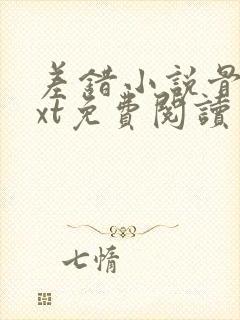 差錯小説骨
xt免費閱讀
七惰